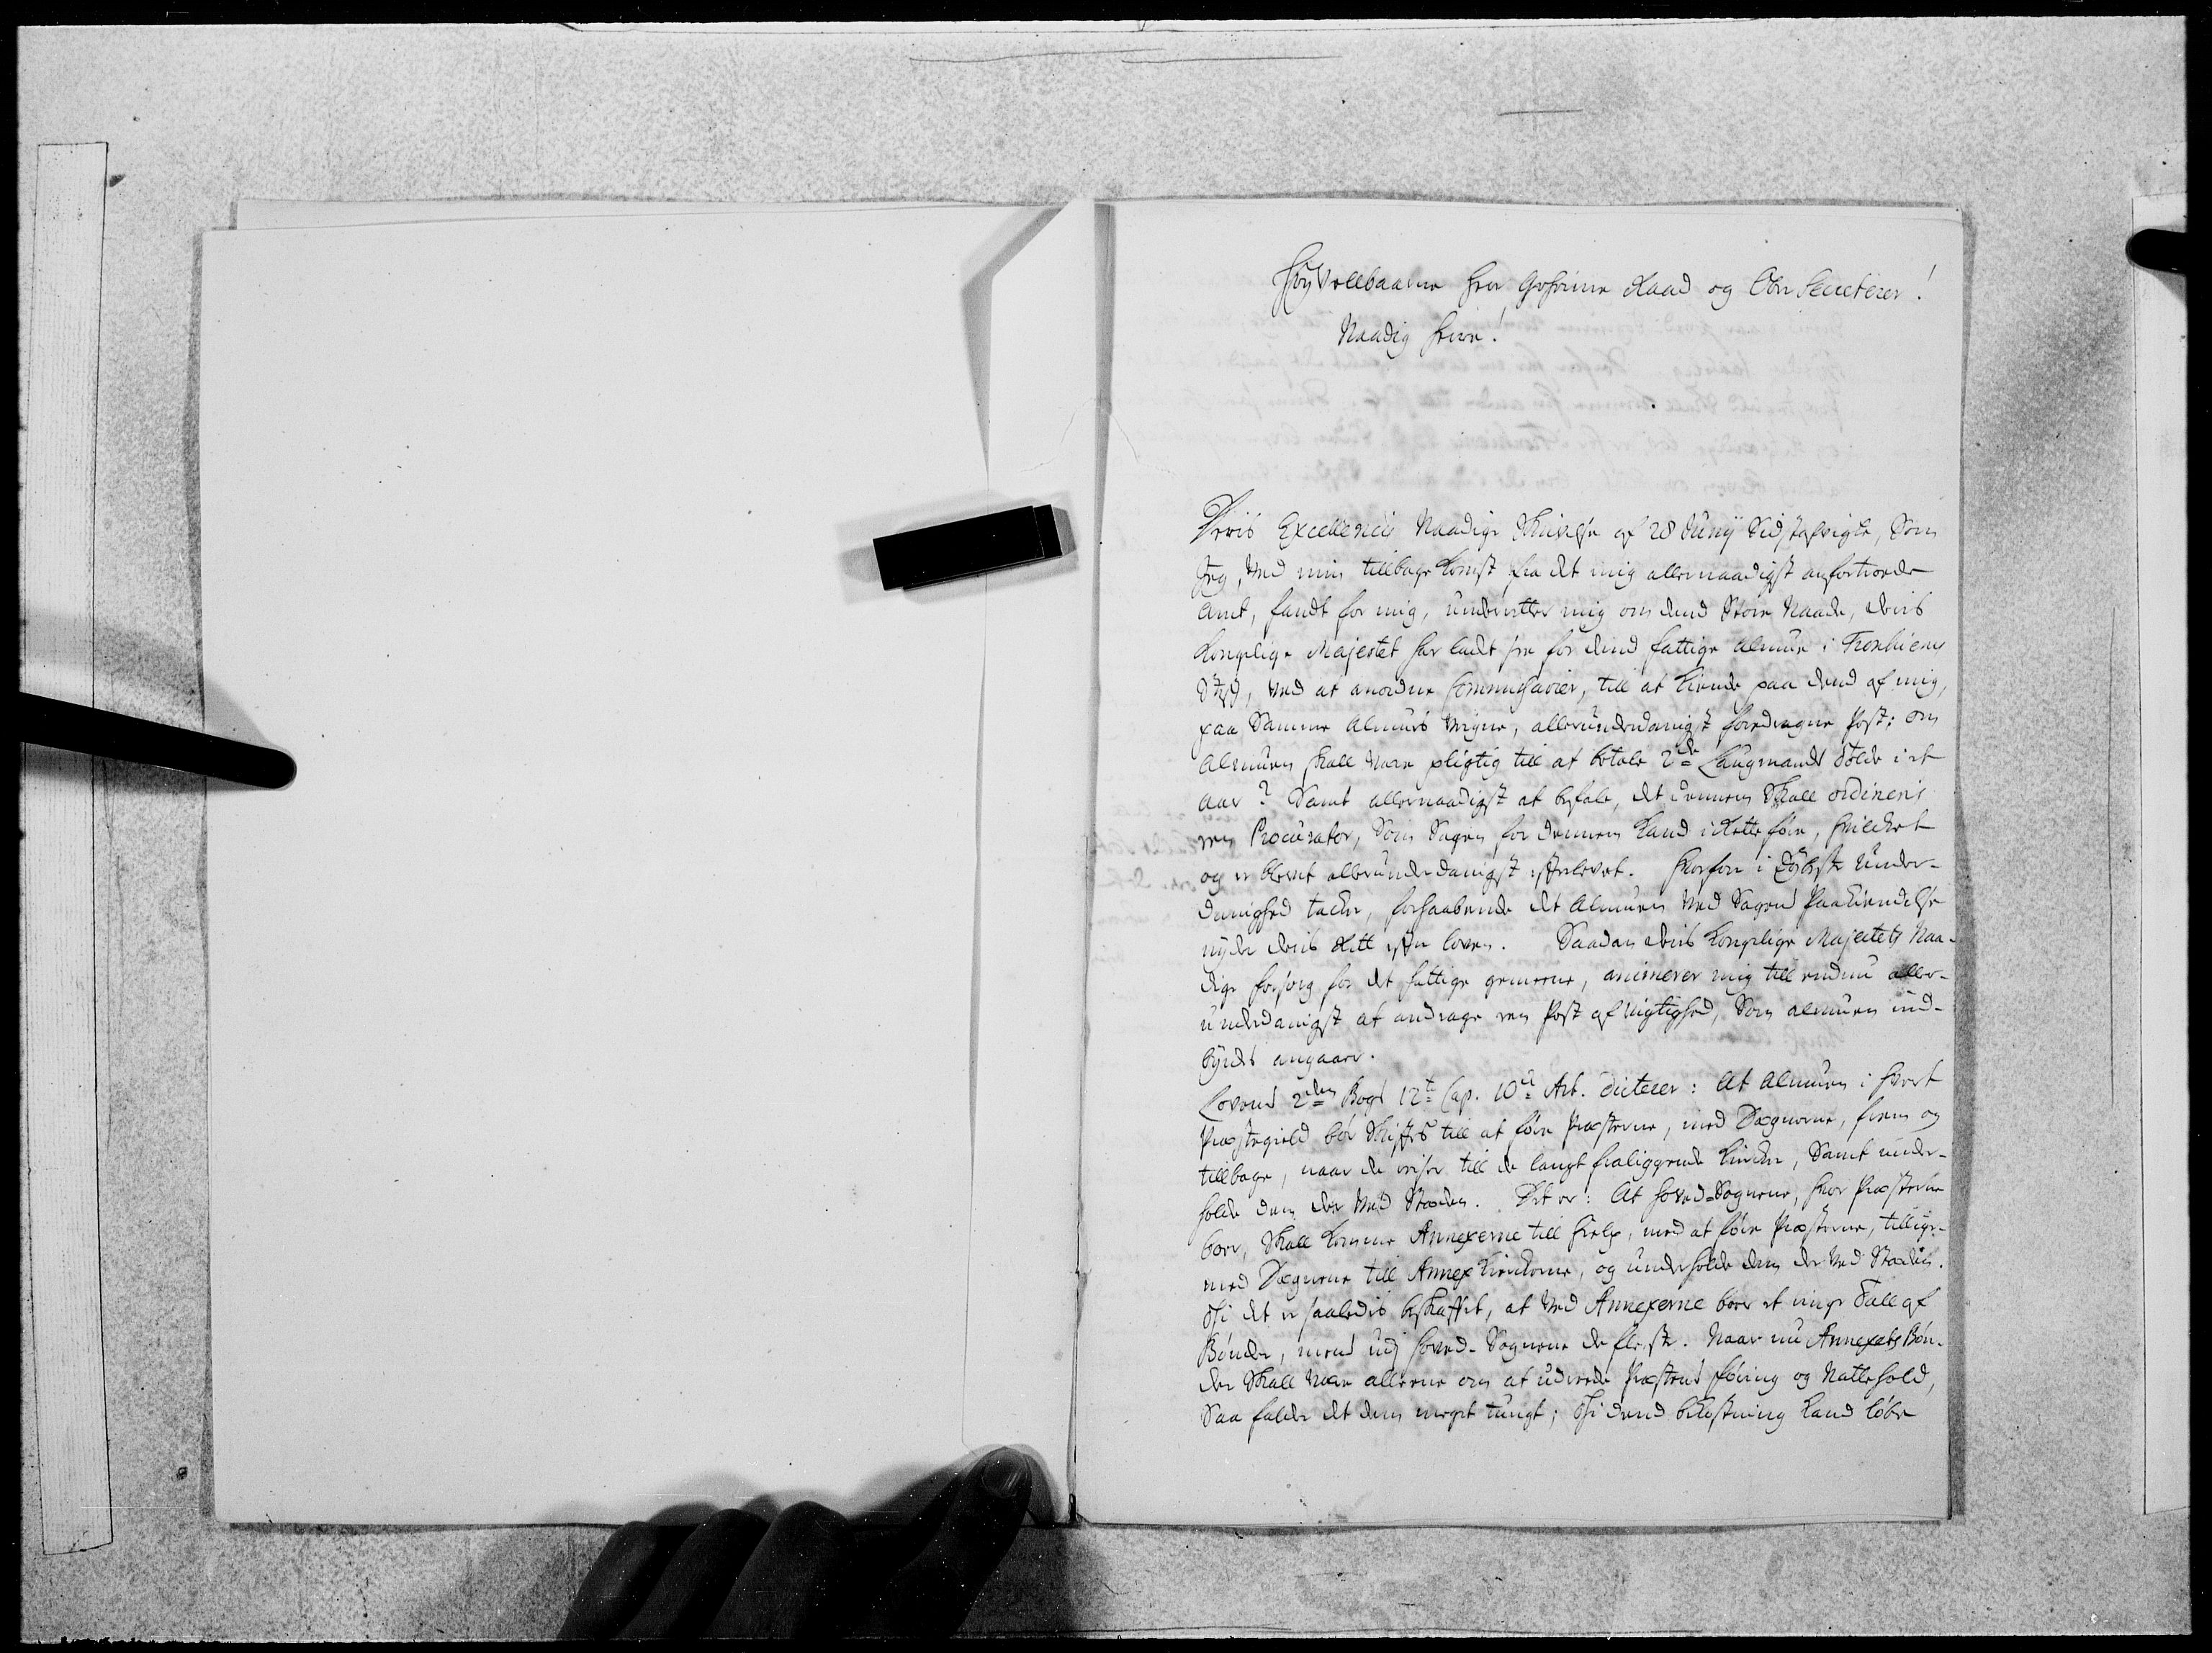 HöyVellbaarne Herr Geheime Raad og Ober Secreterer!
Naadig Herre!
Deris Excellences Naadige Skrivelse af 28 Junij Sidstafvigte, Som
Jeg, Ved min tillbage komst fra det mig allernaadigst anfortroede
Amt, fandt for mig, underretter mig om dend Store Naade, deris
Kongelige Majestet har ladt see for dend fattige Almue i Tronhiems
Stift, Ved at anordne Commissarier, till at kiende paa dend af mig,
paa Samme Almues Vegne, allerunderdanigst foredragne Post: om
Almuen skall Være pligtig till at betale 2de Laugmands Tolde i et
aar? Samt allernaadigst at befale, det Dennem Skall ordineris
een Procurator, Som Sagen for dennem kand i Rette føre, hvilcket
og er blevet allerunderdanigst efterlevet. Hvorfore i dybeste Under-
danighed tacker, forhaabende det Almuen Ved Sagens Paakiendelse
nyder deris Rett efter loven. Saadan deris Kongelige Majestets Naa-
dige forsorg for det fattige gemeene, animerer mig till endnu aller-
underdanigst at andrage een Post af Vigtighed, Som almuen ind-
byrdes angaaer.
Lovens 2den Bogs 12te Cap. 10de Art. dicterer: At Almuen i hvert
Præstegield bør Skiftes till at føre Præsterne, med Degnerne, frem og
tillbage, naar de reiser till de langt fraliggende kircker, Samt under-
holde dem der Ved Stædet. Det er: At hoved-Sognene, hvor Præsterne
boer, Skall komme Annexerne till hielp, med at føre Præsterne, tillige-
med Degnene till Annex Kirckerne, og underholde dem der Ved Stædet.
Thi det er saaledis beskaffet, at Ved Annexerne boer et ringe Tall af
Bønder, mens udj hoved-Sognene de fleste. Naar nu Annexets Bøn-
der Skall Være alleene om at udreede Præstens føring og Natlehold,
Saa falder det dem meget tungt; Thi dend bekostning kand løbe